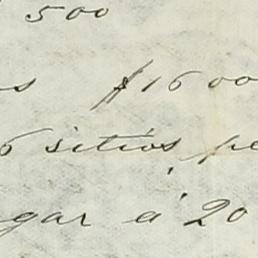 500
$1600
6 sitios
gar á 20